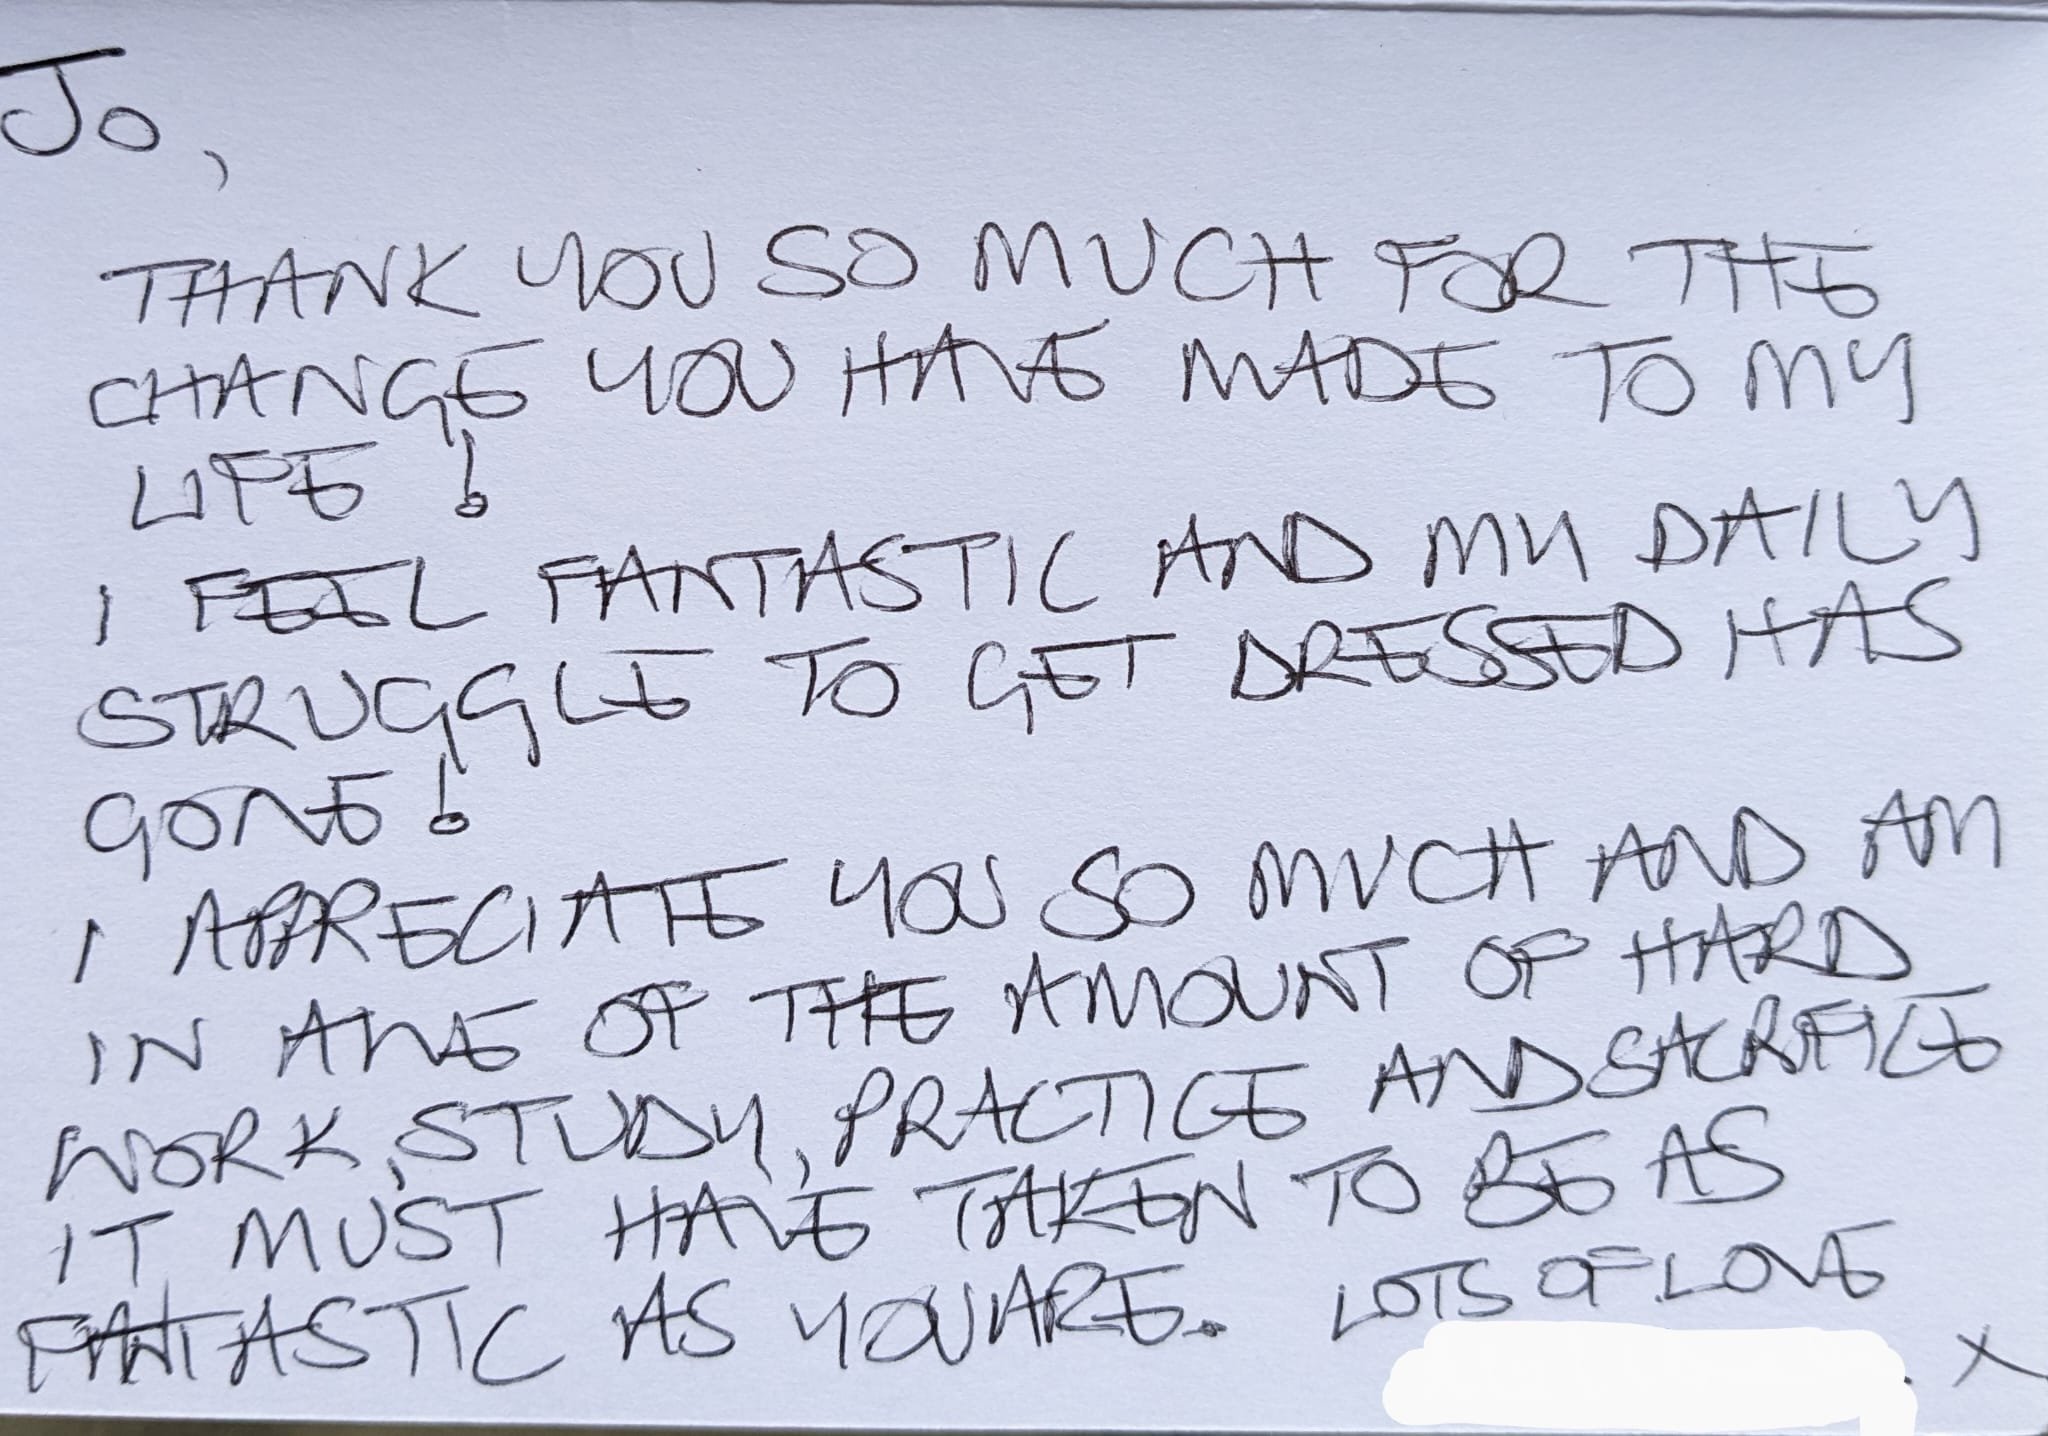 Jo,
THANK YOU SO MUCH FOR THE
CHANGE YOU HAVE MADE TO MY
LIFE!
I FEEL FANTASTIC AND MY DAILY
STRUGGLE TO GET DRESSED HAS
GONE!
I APPRECIATE YOU SO MUCH AND AM
IN AWE OF THE AMOUNT OF HARD
WORK, STUDY, PRACTICE AND SACRIFICE
IT MUST HAVE TAKEN TO BE AS
FANTASTIC AS YOU ARE. LOTS OF LOVE
. X